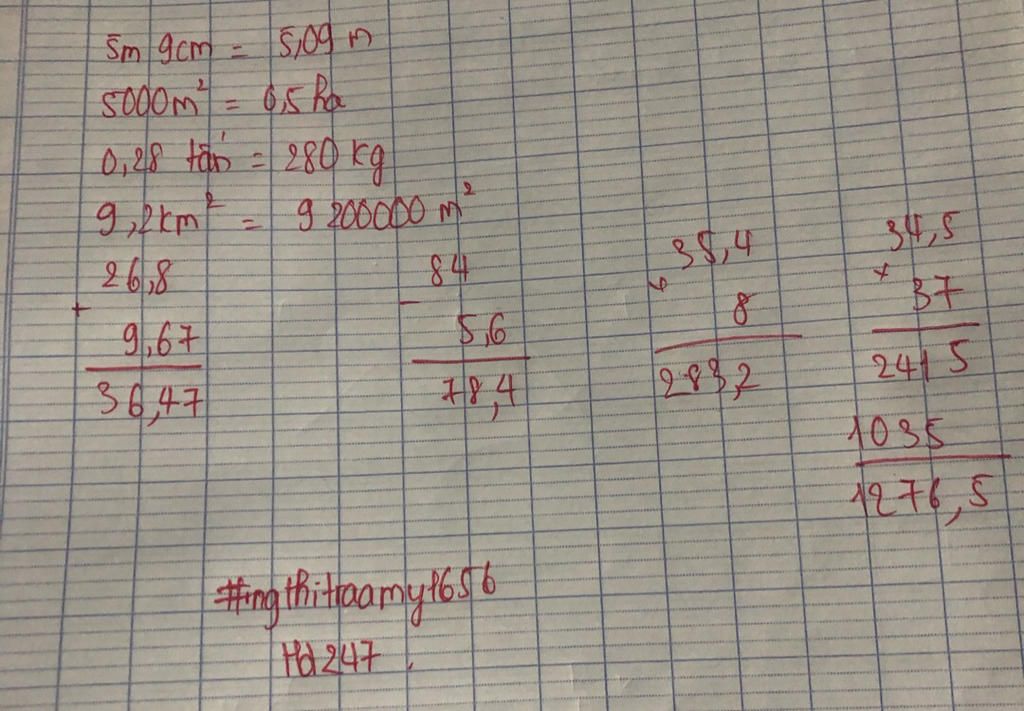 5m 9cm = 5,09 m
5000m² = 0,5 ha
0,28 tấn = 280 kg
9,2km² = 9 200000 m²
26,8
+
9,67
36,47
84
-
5,6
78,4
35,4
×
8
283,2
34,5
×
37
2415
1035
1276,5
#ngthitraamy1656
Hd247.